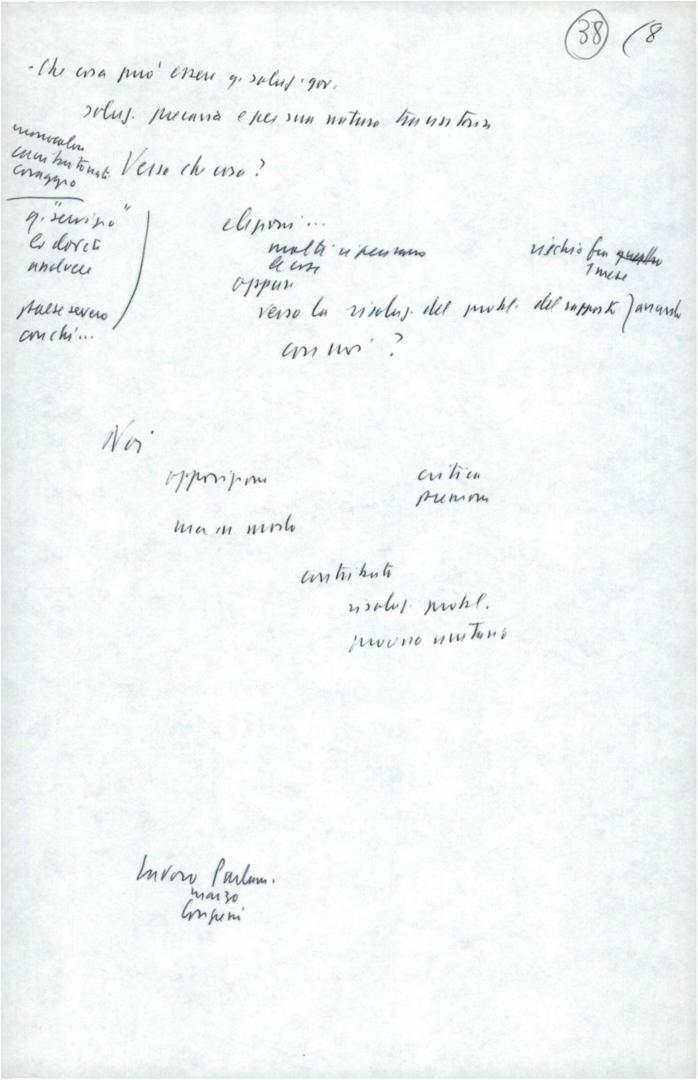 38 (8
- Che cosa può essere q. soluz. gov.
soluz. precaria e per sua natura transitoria
monocolore
contributo
coraggio
Verso che cosa?
q. "servizio"
lo dovrà
paese severo
con chi...
elezioni...
molti ci pensano
le cose
rischio fra
1 mese
oppure
verso la risoluz. del probl. del rapporto
con noi?
Noi
opposizione
critica
ma in modo
contributo
risoluz. probl.
processo unitario
Lavoro Parlam.
marzo
Congressi